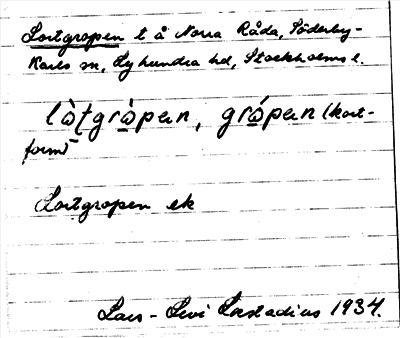 Lortgropen t å Norra Råda, Söderby-
Karls sn, Lyhundra hd, Stockholms l.
gropen (kort-
form)
Lortgropen ek
Lars-Levi Læstadius 1934.